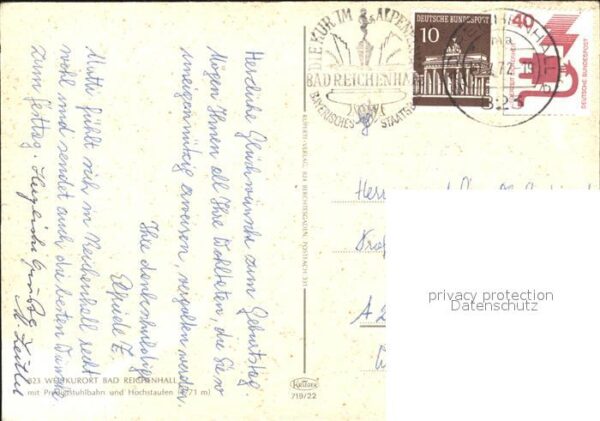 Herzliche Glückwünsche zum Geburtstag.
Mögen Ihnen all Ihre Wohltaten, die Sie so
uneigennützig erweisen, vergolten werden.
Ihre dankschuldige
Elfriede Z.
Mutti fühlt sich in Reichenhall recht
wohl und sendet auch die besten Wünsche
zum Festtag. Herzliche Grüße
DIE KUR IM ALPEN
BAD REICHENHALL
BAYERISCHES STAATSBAD
DEUTSCHE BUNDESPOST
10
40
DEUTSCHE BUNDESPOST
72
RUPERTI-VERLAG, 824 BERCHTESGADEN, POSTFACH 331
Herrn
Prof
A 2
privacy protection
Datenschutz
823 WELTKURORT BAD REICHENHALL
mit Predigtstuhlbahn und Hochstaufen (1771 m)
KRÜGER
719/22